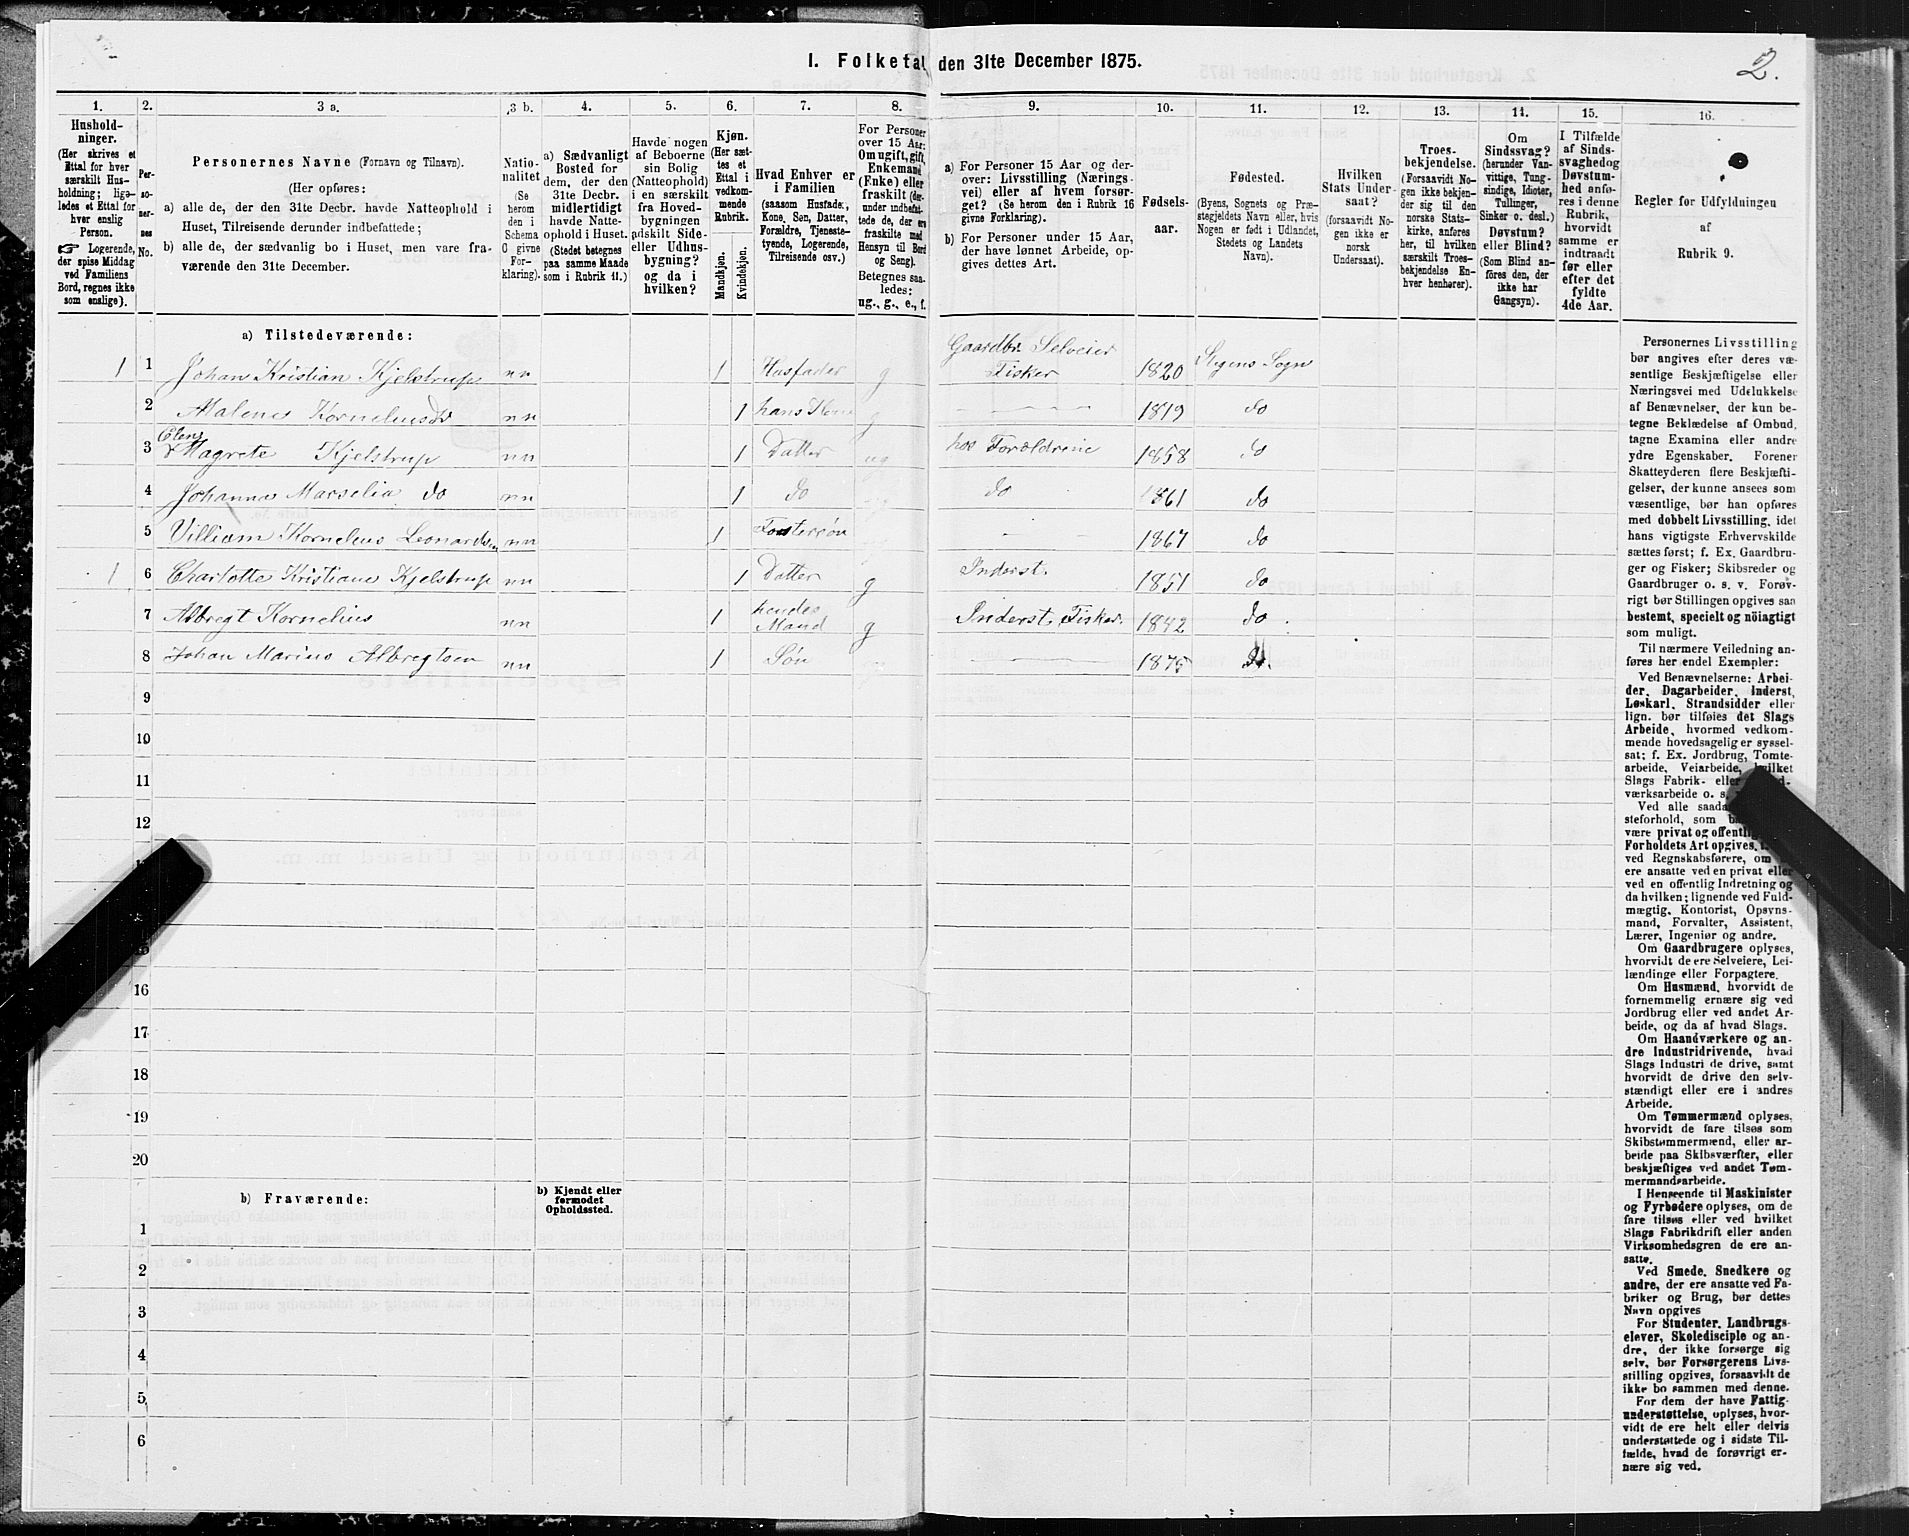 1. Folketal den 31te December 1875.
2.
1.
2.
3 a.
3 b.
4.
5.
6.
7.
8.
9.
10.
11.
12.
13.
14.
15.
16.
Hushold-
ninger.
(Her skrives et
Ettal for hver
særskilt Hus-
holdning; lige-
ledes et Ettal for
hver enslig
Person.
☞ Logerende,
der spise Middag
ved Familiens
Bord, regnes ikke
som enslige).
Per-
so-
ner-
nes
No.
Personernes Navne (Fornavn og Tilnavn).
(Her opføres:
a) alle de, der den 31te Decbr. havde Natteophold i
Huset, Tilreisende derunder indbefattede;
b) alle de, der sædvanlig bo i Huset, men vare fra-
værende den 31te December.
Natio-
nalitet
(Se
herom
den i
Schema
C givne
For-
klaring).
a) Sædvanligt
Bosted for
dem, der den
31te Decbr.
midlertidigt
havde Natte-
ophold i Huset.
(Stedet betegnes
paa samme Maade
som i Rubrik 11.)
Havde nogen
af Beboerne
sin Bolig
(Natteophold)
i en særskilt
fra Hoved-
bygningen
adskilt Side-
eller Udhus-
bygning?
og da i
hvilken?
Kjøn.
(Her sæt-
tes et
Ettal i
vedkom-
mende
Rubrik.
Mandkjøn.
Kvindekjøn.
Hvad Enhver er
i Familien
(saasom Husfader,
Kone, Søn, Datter,
Forældre, Tjeneste-
tyende, Logerende,
Tilreisende osv.)
For Personer
over 15 Aar:
Om ugift, gift,
Enkemand
(Enke) eller
fraskilt (der-
under indbefat-
tede de, der ere
fraskilte med
Hensyn til Bord
og Seng).
Betegnes saa-
ledes:
ug., g., e., f.
a) For Personer 15 Aar og der-
over: Livsstilling (Nærings-
vei) eller af hvem forsør-
get? (Se herom den i Rubrik 16
givne Forklaring).
b) For Personer under 15 Aar,
der have lønnet Arbeide, op-
gives dettes Art.
Fødsels-
aar.
Fødested.
(Byens, Sognets og Præ-
stegjeldets Navn eller, hvis
Nogen er født i Udlandet,
Stedets og Landets
Navn).
Hvilken
Stats Under-
saat?
(forsaavidt No-
gen ikke er
norsk
Undersaat).
Troes-
bekjendelse.
(Forsaavidt No-
gen ikke bekjen-
der sig til den
norske Stats-
kirke, anføres
her, til hvilken
særskilt Troes-
bekjendelse En-
hver henhører).
Om
Sindssvag?
(herunder Van-
vittige, Tung-
sindige, Idioter,
Tullinger,
Sinker o. desl.)
Døvstum?
eller Blind?
(Som Blind an-
føres den, der
ikke har
Gangsyn).
I Tilfælde
af Sinds-
svaghed og
Døvstum-
hed anfø-
res i denne
Rubrik,
hvorvidt
samme er
indtraadt
før eller
efter det
fyldte
4de Aar.
Regler for Udfyldningen
af
Rubrik 9.
a) Tilstedeværende:
1 1 Johan Kristian Kjelstrup nn 1 Husfader g Gaardbr. Selveier
Fisker 1820 Stegens Sogn
2 Malene Kornelius Dr nn 1 hans Kone g 1819 do
Elen
3 Magrete Kjelstrup nn 1 Datter ug hos Forældrene 1858 do
4 Johanna Marselia do nn 1 do do 1861 do
5 Villiam Kornelius Leonardsen nn 1 Fostersøn 1867 do
1 6 Charlotte Kristiane Kjelstrup nn 1 Datter g Inderst. 1851 do
7 Albregt Kornelius nn 1 hendes
Mand g Inderst Fisker. 1842 do
8 Johan Marius Albregtsen nn 1 Søn 1875 do.
9
10
11
12
15
16
17
18
19
20
b) Fraværende:
b) Kjendt eller
formodet
Opholdssted.
1
2
3
4
5
6
Personernes Livsstilling
bør angives efter deres væ-
sentlige Beskjæftigelse eller
Næringsvei med Udelukkelse
af Benævnelser, der kun be-
tegne Beklædelse af Ombud,
tagne Examina eller andre
ydre Egenskaber. Forener
Skatteyderen flere Beskjæfti-
gelser, der kunne ansees som
væsentlige, bør han opføres
med dobbelt Livsstilling, idet
hans vigtigste Erhvervskilde
sættes først; f. Ex. Gaardbru-
ger og Fisker; Skibsreder og
Gaardbruger o. s. v. Forøv-
rigt bør Stillingen opgives saa
bestemt, specielt og nöiagtigt
som muligt.
Til nærmere Veiledning an-
føres her endel Exempler:
Ved Benævnelserne: Arbei-
der, Dagarbeider, Inderst,
Løskarl, Strandsidder eller
lign. bør tilføies det Slags
Arbeide, hvormed vedkom-
mende hovedsagelig er syssel-
sat; f. Ex. Jordbrug, Tomte-
arbeide, Veiarbeide, hvilket
Slags Fabrik- eller
værksarbeide o. s.
Ved alle saada
steforhold, som
være privat og offentlig
Forholdets Art opgives.
ved Regnskabsførere, om
ere ansatte ved en privat eller
ved en offentlig Indretning og
da hvilken; lignende ved Fuld-
mægtig, Kontorist, Opsyns-
mand, Forvalter, Assistent,
Lærer, Ingeniør og andre.
Om Gaardbrugere oplyses,
hvorvidt de ere Selveiere, Lei-
lændinge eller Forpagtere.
Om Husmænd, hvorvidt de
fornemmelig ernære sig ved
Jordbrug eller ved andet Ar-
beide, og da af hvad Slags.
Om Haandværkere og an-
dre Industridrivende, hvad
Slags Industri de drive, samt
hvorvidt de drive den selv-
stændigt eller ere i andres
Arbeide.
Om Tømmermænd oplyses,
hvorvidt de fare tilsøs som
Skibstømmermænd, eller ar-
beide paa Skibsværfter, eller
beskjæftiges ved andet Tøm-
mermandsarbeide.
I Henseende til Maskinister
og Fyrbødere oplyses, om de
fare tilsøs eller ved hvilket
Slags Fabrikdrift eller anden
Virksomhedsgren de ere an-
satte.
Ved Smede, Snedkere og
andre, der ere ansatte ved Fa-
briker og Brug, bør dettes
Navn opgives
For Studenter, Landbrugs-
elever, Skoledisciple og an-
dre, der ikke forsørge sig
selv, bør Forsørgerens Livs-
stilling opgives, forsaavidt de
ikke bo sammen med denne.
For dem der have Fattig-
understøttelse, oplyses, hvor-
vidt de ere helt eller delvis
understøttede og i sidste Til-
fælde, hvad de forøvrigt er-
nære sig ved.